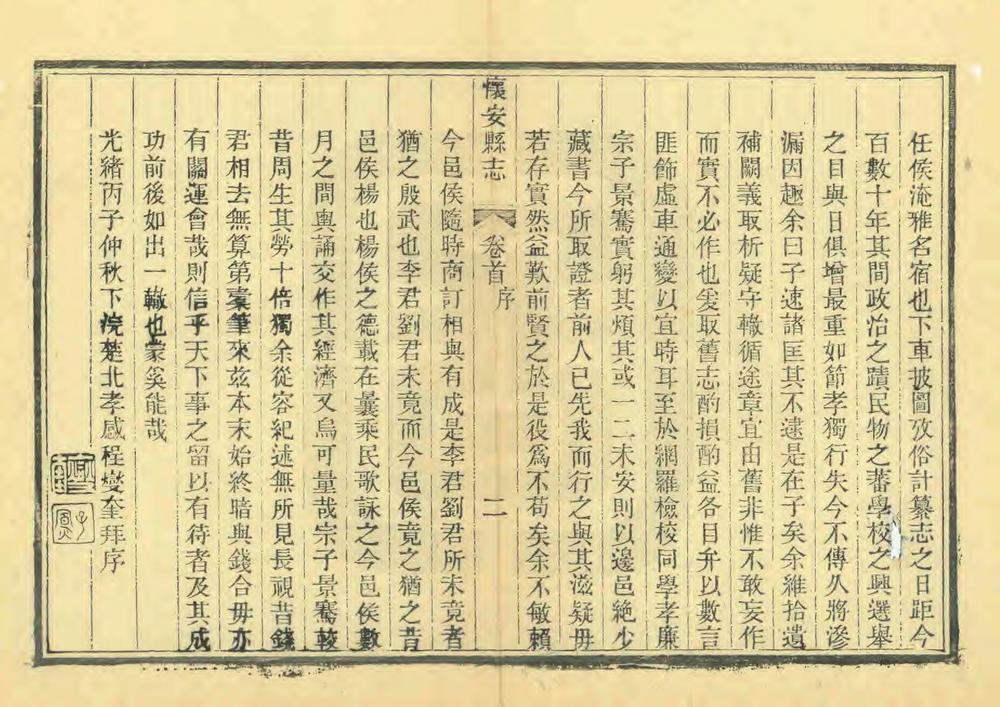 任侯淹雅名宿也下車披圖攷俗計纂志之日距今
百數十年其間政治之蹟民物之蕃學校之興選舉
之目與日俱增最重如節孝獨行失今不傳久將滲
漏因趣余曰子速諸匡其不逮是在子矣余維拾遺
補闕義取析疑守轍循途章宜由舊非惟不敢妄作
而實不必作也爰取舊志酌損酌益各目弁以數言
匪飾虛車通變以宜時耳至於網羅檢校同學孝廉
宗子景騫實躬其煩其或一二未安則以邊邑絶少
藏書今所取證者前人已先我而行之與其滋疑毋
若存實然益歎前賢之於是役爲不苟矣余不敏賴
懷安縣志 卷首 序 二
今邑侯隨時商訂相與有成是李君劉君所未竟者
猶之殷武也李君劉君未竟而今邑侯竟之猶之昔
邑侯楊也楊侯之德載在曩乘民歌詠之今邑侯數
月之間輿誦交作其經濟又烏可量哉宗子景騫較
昔周生其勞十倍獨余從容紀述無所見長視昔錢
君相去無算第橐筆來兹本末始終暗與錢合毋亦
有關運會哉則信乎天下事之留以有待者及其成
功前後如出一轍也蒙奚能哉
光緒丙子仲秋下浣楚北孝感程燮奎拜序